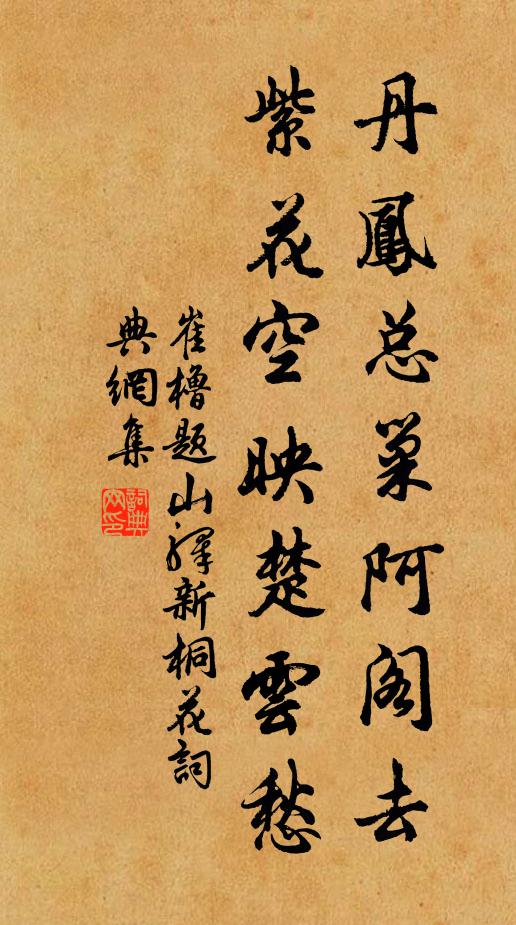 丹鳳总巢阿阁去
紫花空映楚雲愁
崔橹题山驛新桐花詞
典網集
詞典网印